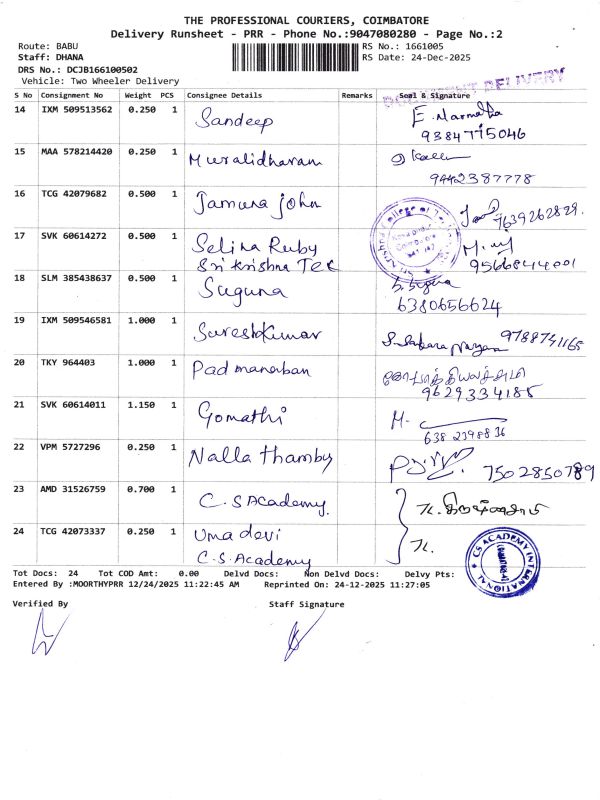 THE PROFESSIONAL COURIERS, COIMBATORE
Delivery Runsheet - PRR - Phone No.:9047080280 - Page No.:2
Route: BABU RS No.: 1661005
Staff: DHANA RS Date: 24-Dec-2025
DRS No.: DCJB166100502
Vehicle: Two Wheeler Delivery
DELIVERY
S No Consignment No Weight PCS Consignee Details Remarks Seal & Signature
14 IXM 509513562 0.250 1 Sandeep
9384775046
15 MAA 578214420 0.250 1 Muralidharan
9442387778
16 TCG 42079682 0.500 1 Jamuna john 7639262829.
17 SVK 60614272 0.500 1 Selina Ruby
Sri Krishna Tec
18 SLM 385438637 0.500 1 Suguna
6380656624
19 IXM 509546581 1.000 1 Sureshkumar 9788741165
20 TKY 964403 1.000 1 Padmanaban
9629334185
21 SVK 60614011 1.150 1 Gomathi M.
638 2398836
22 VPM 5727296 0.250 1 Nalla thamby 7502850789
23 AMD 31526759 0.700 1 C.S Academy.
24 TCG 42073337 0.250 1 Uma devi
C.S. Academy
CS ACADEMY INTERNATIONAL
Tot Docs: 24 Tot COD Amt: 0.00 Delvd Docs: Non Delvd Docs: Delvy Pts:
Entered By :MOORTHYPRR 12/24/2025 11:22:45 AM Reprinted On: 24-12-2025 11:27:05
Verified By Staff Signature